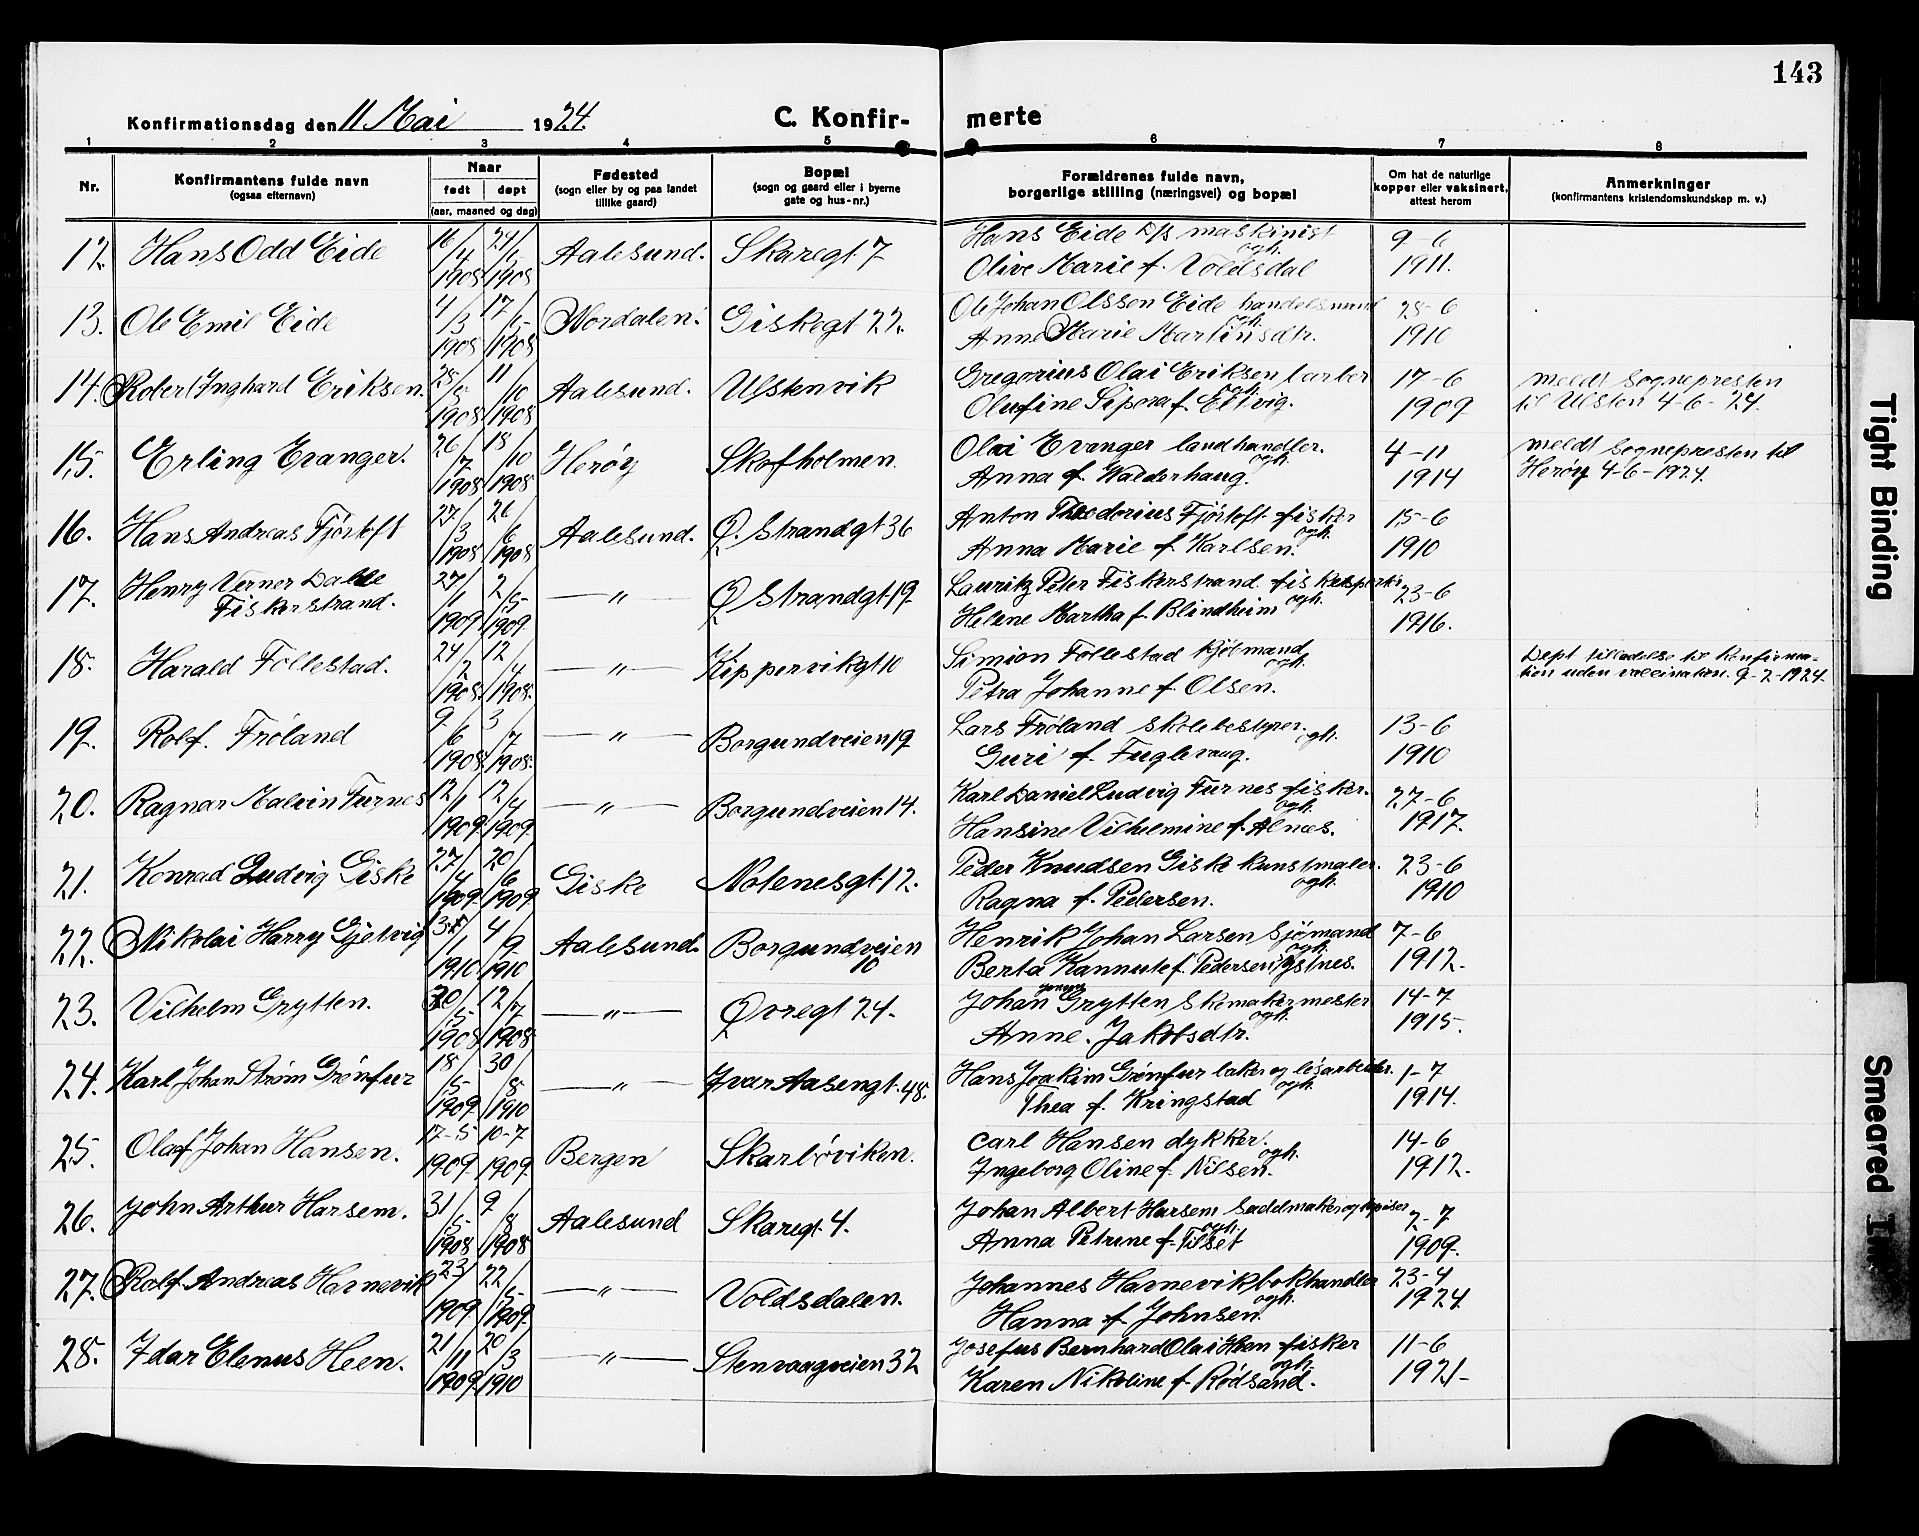 143
Konfirmationsdag den 11 Mai 1924. C. Konfir- merte
1 2 3 4 5 6 7 8
Nr. Konfirmantens fulde navn (ogsaa efternavn) Naar født døpt (aar, maaned og dag) Fødested (sogn eller by og paa landet tillike gaard) Bopæl (sogn og gaard eller i byerne gate og hus-nr.) Forældrenes fulde navn, borgerlige stilling (næringsvei) og bopæl Om hat de naturlige kopper eller vaksinert, attest herom Anmerkninger (konfirmantens kristendomskundskap m. v.)
12. Hans Odd Eide 16/4 1908 Aalesund. Skaregt 7 Hans Eide D/s maskinist ogh. 9-6
Olive Marie f. Voldsdal 1911.
13. Ole Emil Eide 4/3 1908 17/5 1908 Nordalen. Giskegt 22. Ole Johan Olsson Eide handelsmand ogh. 28-6
Anne Marie Martinsdtr. 1910
14. Robert Inghard Eriksen. 11/10 1908 Aalesund. Ulstenvik Gregorius Olai Eriksen ogh. 17-6 meldt sognepresten
Olufine Sipora f. Eltvig. 1909 til Ulsten 4-6-24.
15. Erling Evanger. 26/7 1908 18/10 1908 Herøy Skofholmen. Olai Evanger landhandler. ogh. 4-11 meldt sognepresten til
Anna f. Walderhaug. 1914 Herøy 4-6-1924.
16. Hans Andreas Fjørtoft 27/3 1908 21/6 1908 Aalesund. Ø. Strandgt 36 Anton Theodorius Fjørtoft fisker ogh. 15-6
Anna Marie f. Karlsen. 1910
17. Henry Verner Dalle 27/1 1909 2/5 1909 —"— Ø Strandgt 19. Lauritz Peter Fiskerstrand. ogh. 23-6
Fiskerstrand. Helene Martha f. Blindheim 1916.
18. Harald Follestad. 24/2 1908 12/4 1908. —"— Kippervikgt 10 Simion Follestad kjølmand ogh. Dept. tilladelse til Konfirma-
Petra Johanne f. Olsen. tion uden vaccination. 9-2-1924
19. Rolf. Frøland 9/6 1908 3/7 1908. —"— Borgundveien 19 Lars Frøland skolebestyrer. ogh. 13-6
Guri f. Fuglevaag. 1910
20. Ragnar Malvin Furnes 12/1 1909 12/4 1909 —"— Borgundveien 14. Karl Daniel Ludvig Furnes fisker. ogh. 27-6
Hansine Vilhelmine f. Alnæs. 1917.
21. Konrad Ludvig Giske 27/4 1909 20/6 1909 Giske Notenesgt 12. Peder Knudsen Giske kunstmaler. ogh. 23-6
Ragna f. Pedersen. 1910
22. Nikolai Harry Gjelvig 1910 4/9 1910 Aalesund. Borgundveien Henrik Johan Larsen Sjømand ogh. 7-6
10 Berta Kannute f. Pedersen 1912.
23. Vilhelm Grytten. 30/5 1908 12/7 1908 —"— Øvregt 24. Johan Grytten Skomakermester ogh. 14-7
Anne. Jakobsdtr. 1915.
24. Karl Johan Strøm Grønfur 18/5 1909 30/8 1910 —"— Ivar Aasengt. 48. Hans Joakim Grønfur løsarbeider. ogh. 1-7
Thea f. Kringstad 1914.
25. Olaf Johan Hansen. 17-5 1909 10-7 1909 Bergen Skarbøviken. Carl Hansen dykker. ogh. 14-6
Ingeborg Oline f. Nilsen. 1912.
26. John Arthur Harsem. 31/5 1908 9/8 1908 Aalesund Skaregt 4. Johan Albert Harsem Saddmaker og ogh. 2-7
Anna Petrine f. Tilset 1909.
27. Rolf Andreas Harnevik 1909 22/5 1909 —"— Voldsdalen. Johannes Harnevik bokhandler ogh. 23-4
Hanna f. Johnsen. 1924
28. Idar Elenus Heen. 21/11 1909 20/3 1910 —"— Stenvaagveien 32 Josefus Bernhard Olai Heen fisker ogh. 11-6
Karen Nikoline f. Rødsand. 1921-
Tight Binding
Smeared